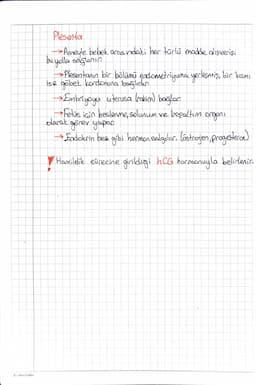 Plesenta
→Anneyle bebek arasındaki her türlü madde alışverişi
bu yolla sağlanır.
→Plesentanın bir bölümü endometriyuma yerleşmiş, bir kısmı
ise göbek kordonuna bağlıdır.
→Embriyoyu uterusa (rahim) bağlar.
→Fetüs için beslenme, solunum ve boşaltım organı
olarak görev yapar.
→Endokrin bez gibi hormon salgılar. (östrojen, progesteron)
! Hamilelik sürecine girildiği hCG hormonuyla belirlenir.